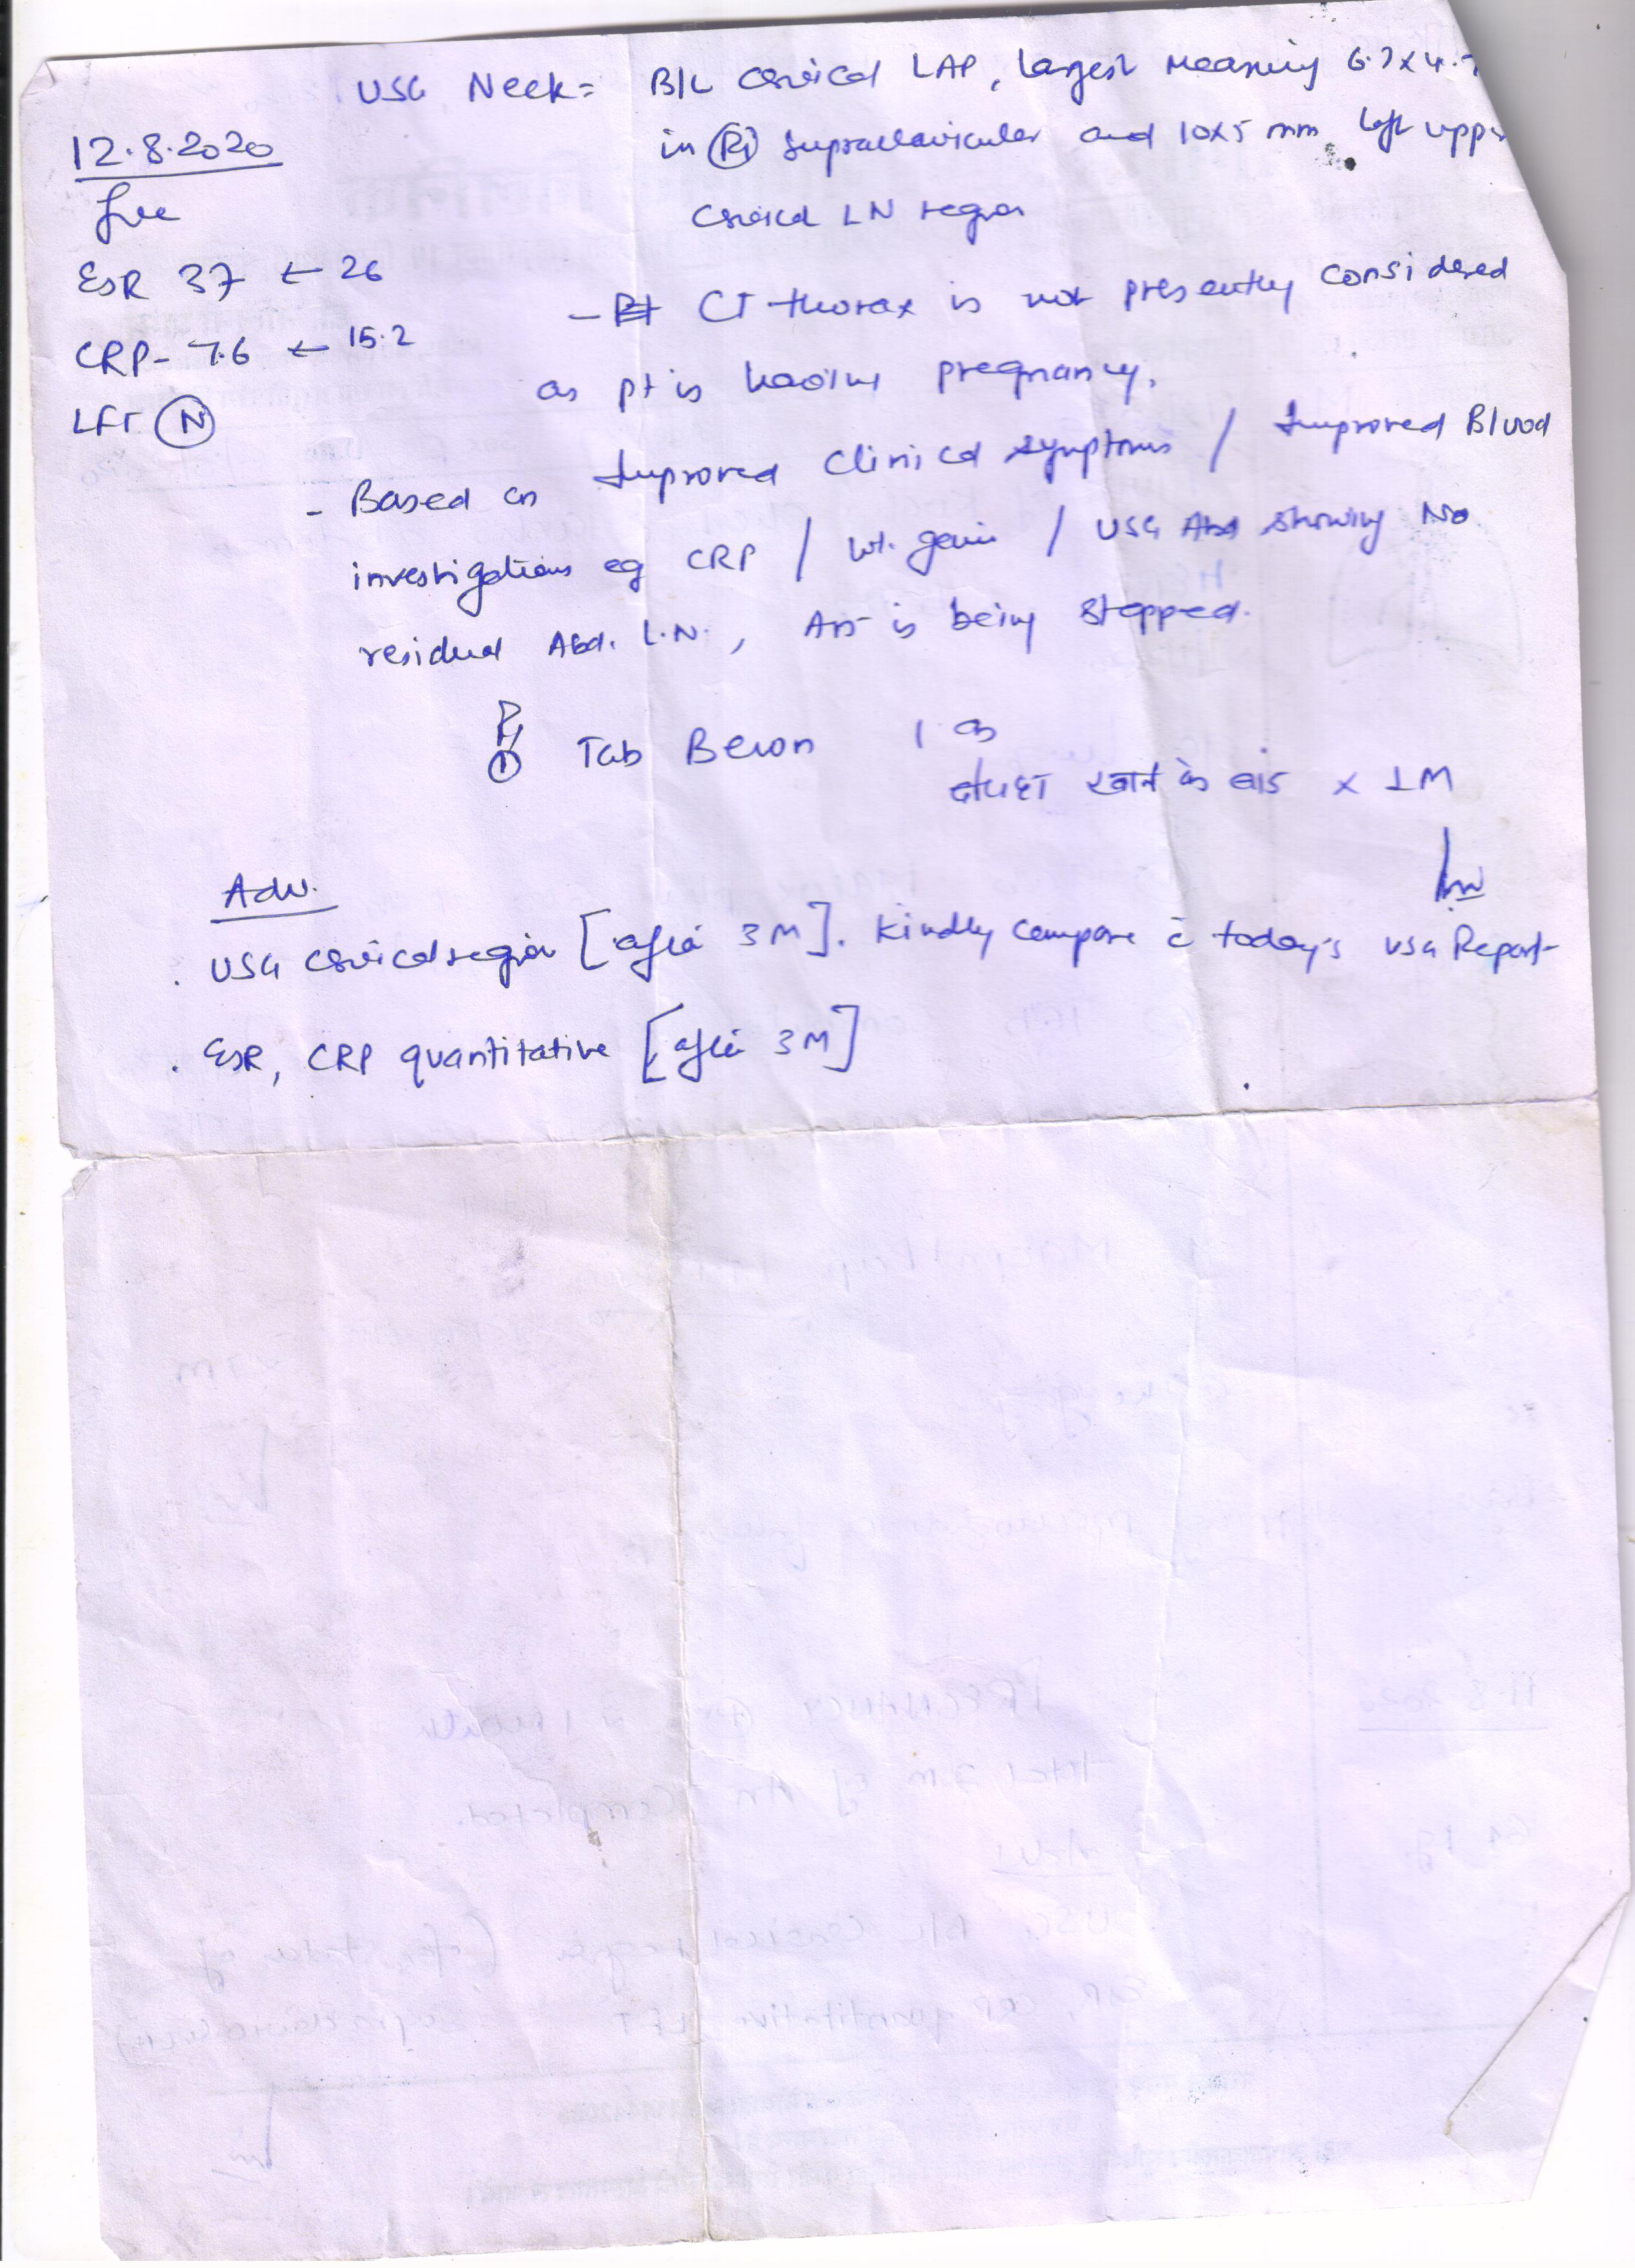 USG Neck = B/L cervical LAP, largest measuring 6.7x4.7
12.8.2020
in Rt supraclavicular and 10x5 mm left upper
free
cervical LN region
ESR 37 ← 26
- CT thorax is not presently considered
CRP- 7.6 ← 15.2
as pt is having pregnancy.
LFT N
- Based on Improved clinical symptoms / Improved Blood
investigations eg CRP / Wt. gain / USG Abd showing No
residual Abd. L.N., ATT is being stopped.
Rx
1 Tab Becon 1 OD
दोपहर खाने के बाद x 1M
Adv.
. USG cervical region [after 3M]. Kindly compare c̄ today's USG Report
. ESR, CRP quantitative [after 3M]